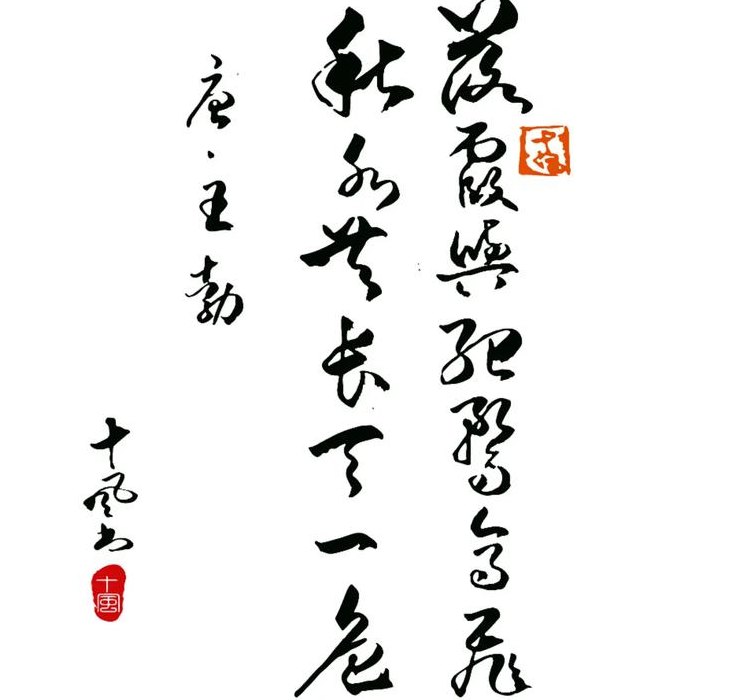 落霞與孤鶩齊飛
秋水共长天一色
唐·王勃
十风书
十風